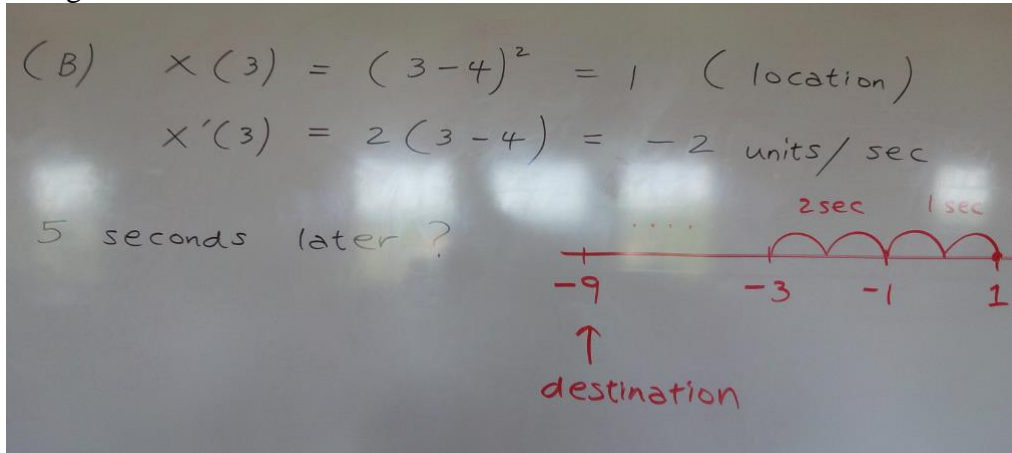 (B) x(3) = (3-4)² = 1 (location)
x´(3) = 2(3-4) = -2 units/sec
5 seconds later?
2 sec 1 sec
....
-9 -3 -1 1
↑
destination